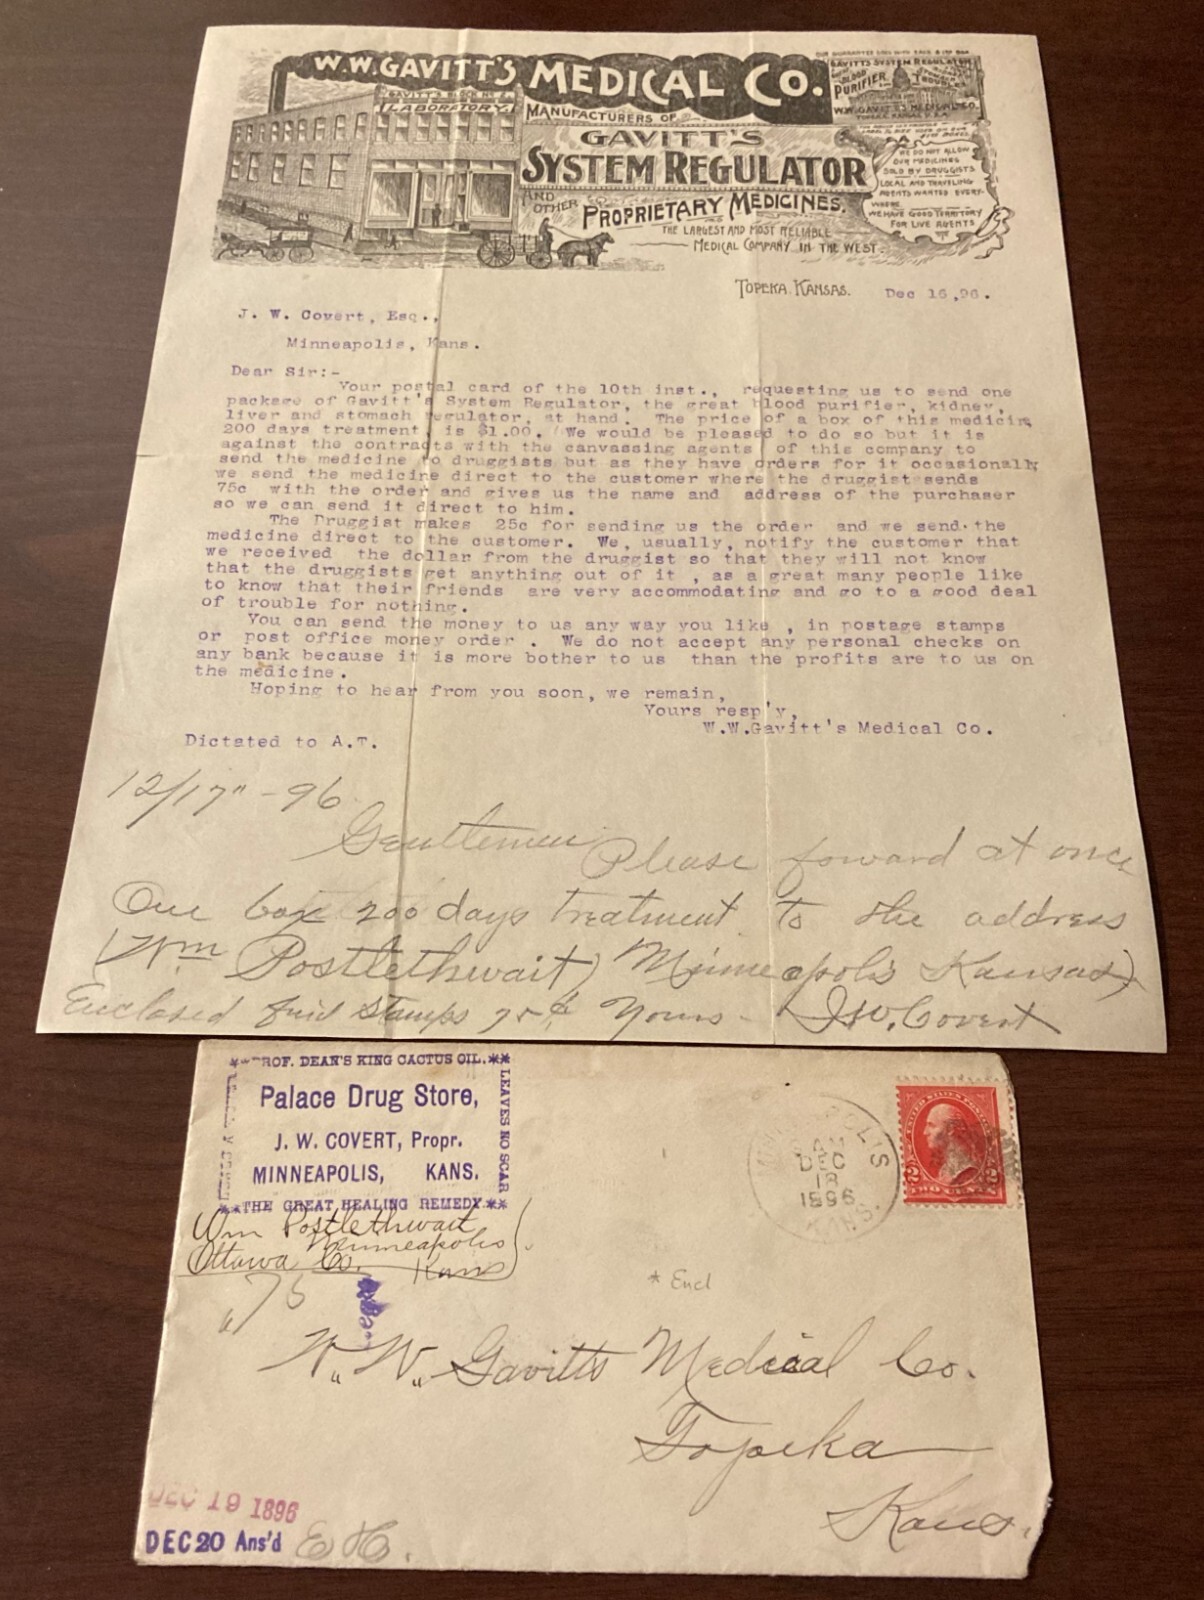 W.W. GAVITT'S MEDICAL CO.
GAVITT'S BLOCK NO. 2
LABORATORY.
MANUFACTURERS OF
GAVITT'S
SYSTEM REGULATOR
AND OTHER PROPRIETARY MEDICINES.
THE LARGEST AND MOST RELIABLE
MEDICAL COMPANY IN THE WEST.
OUR GUARANTEE GOES WITH EACH & EVERY BOX
GAVITT'S SYSTEM REGULATOR
BLOOD
PURIFIER
W.W. GAVITT'S MEDICAL CO.
TOPEKA, KANSAS, U.S.A.
WE DO NOT ALLOW
OUR MEDICINES
SOLD BY DRUGGISTS
LOCAL AND TRAVELING
AGENTS WANTED EVERY-
WHERE
WE HAVE GOOD TERRITORY
FOR LIVE AGENTS
TOPEKA, KANSAS. Dec 16,96.
J. W. Covert, Esq.,
Minneapolis, Kans.
Dear Sir:-
Your postal card of the 10th inst., requesting us to send one
package of Gavitt's System Regulator, the great blood purifier, kidney,
liver and stomach regulator, at hand. The price of a box of this medicine
200 days treatment, is $1.00. We would be pleased to do so but it is
against the contracts with the canvassing agents of this company to
send the medicine to druggists but as they have orders for it occasionally
we send the medicine direct to the customer where the druggist sends
75c with the order and gives us the name and address of the purchaser
so we can send it direct to him.
The Druggist makes 25c for sending us the order and we send the
medicine direct to the customer. We, usually, notify the customer that
we received the dollar from the druggist so that they will not know
that the druggists get anything out of it , as a great many people like
to know that their friends are very accommodating and go to a good deal
of trouble for nothing.
You can send the money to us any way you like , in postage stamps
or post office money order . We do not accept any personal checks on
any bank because it is more bother to us than the profits are to us on
the medicine.
Hoping to hear from you soon, we remain,
Yours resp'y,
W.W.Gavitt's Medical Co.
Dictated to A.T.
12/17" - 96
Gentlemen Please forward at once
One box 200 days treatment to the address
(Wm Postlethwait) Minneapolis Kansas)
Enclosed find stamps 75¢ Yours - J.W. Covert
PROF. DEAN'S KING CACTUS OIL.
Palace Drug Store,
J. W. COVERT, Propr.
MINNEAPOLIS, KANS.
THE GREAT HEALING REMEDY
LEAVES NO SCAR
MINNEAPOLIS
AM
DEC
18
1896
KANS.
UNITED STATES POSTAGE
TWO CENTS
Wm Postlethwait
Minneapolis
Ottawa Co. Kans
"75
* Encl
W. W. Gavitts Medical Co.
Topeka
Kans.
DEC 19 1896
DEC 20 Ans'd